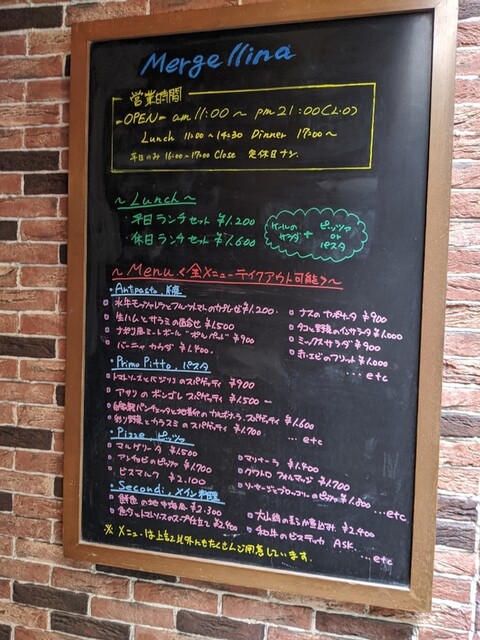 Mergellina
営業時間
-OPEN- am 11:00 ~ pm 21:00 (L.O)
Lunch 11:00~14:30 Dinner 17:00~
平日のみ 16:00~17:00 Close 定休日ナシ
~Lunch~
・平日ランチセット ¥1,200
・休日ランチセット ¥1,600
ケールのサラダ + ピッツァ or パスタ
~Menu <全メニューテイクアウト可能>~
・Antipasto 前菜
水牛モッツァレラとフルーツトマトのカプレーゼ ¥1,200.
生ハムとサラミの盛合せ ¥1,500
ナポリ風ミートボール "ポルペッテ" ¥900
バーニャカウダ ¥1,400.
ナスのカポナータ ¥900
タコと野菜のインサラータ ¥1,000
ミックスサラダ ¥900
赤エビのフリット ¥1,000
...etc
・Primo Pitto. パスタ
トマトソースとバジリコのスパゲッティ ¥900
アサリのボンゴレスパゲッティ ¥1,500
自家製パンチェッタと地養卵のカルボナーラ スパゲッティ ¥1,600
彩り野菜とカラスミのスパゲッティ ¥1,700
... etc
・Pizze. ピッツァ
マルゲリータ ¥1,500
アンチョビのピッツァ ¥1,700
ビスマルク ¥2,100
マリナーラ ¥1,400
クワトロフォルマッジ ¥1,700
ソーセージとブロッコリーのピッツァ ¥1,800
...etc
・Secondi. メイン料理
鮮魚の地中海風 ¥2,300
魚介とトマトソースのスープ仕立て ¥2,400
大山鶏の煮込み ¥2,400
和牛のビステッカ ASK.
... etc
※メニューは上記以外にもたくさんご用意しています.